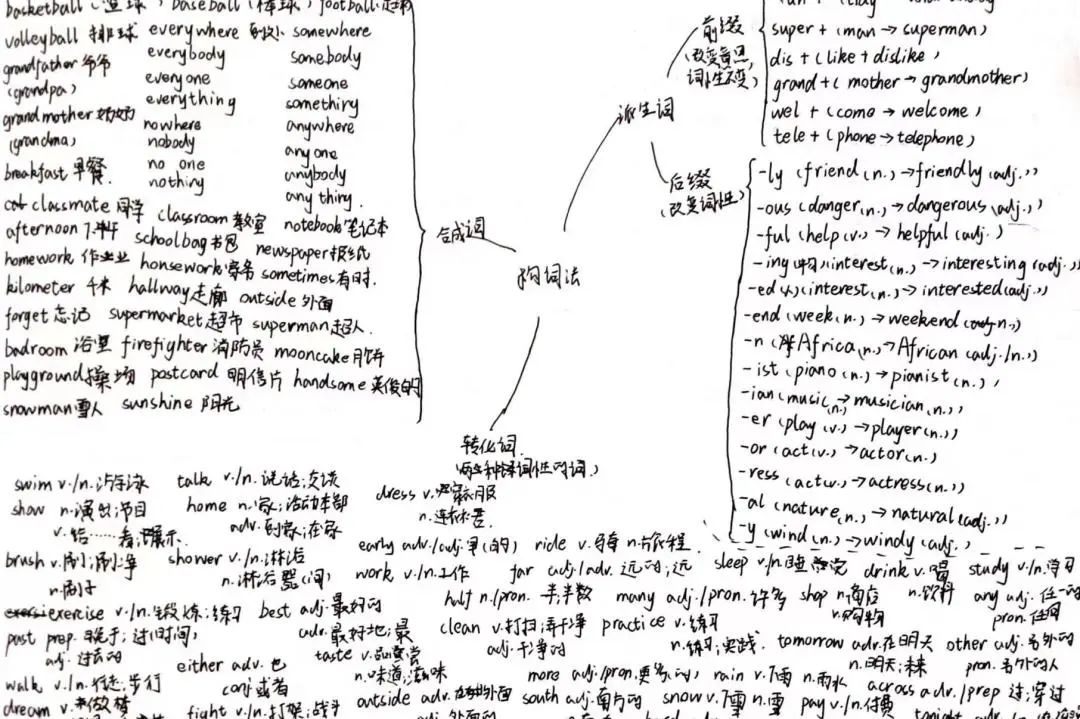 basketball (篮球) baseball (棒球) football
volleyball 排球 everywhere 到处 somewhere
grandfather 爷爷 everybody somebody
(grandpa) everyone someone
everything something
grandmother 奶奶 nowhere anywhere
(grandma) nobody anyone
breakfast 早餐 no one anybody
nothing anything
classmate 同学 classroom 教室 notebook 笔记本
afternoon 下午 schoolbag 书包 newspaper 报纸
homework 作业 housework 家务 sometimes 有时.
kilometer 千米 hallway 走廊 outside 外面
forget 忘记 supermarket 超市 superman 超人.
badroom 浴室 firefighter 消防员 mooncake 月饼
playground 操场 postcard 明信片 handsome 英俊的
snowman 雪人 sunshine 阳光
合成词
构词法
派生词
前缀
(改变意思,
词性不变)
super + (man → superman)
dis + (like + dislike)
grand + ( mother → grandmother)
wel + (come → welcome)
tele + (phone → telephone)
后缀
(改变词性)
-ly (friend (n.) → friendly (adj.))
-ous (danger (n.) → dangerous (adj.)
-ful (help (v.) → helpful (adj.)
-ing (物) (interest (n.) → interesting (adj.)
-ed (人) (interest (n.) → interested (adj.))
-end (week (n.) → weekend (n.)
-n (Africa (n.) → African (adj./n.)
-ist (piano (n.) → pianist (n.)
-ian (music (n.) → musician (n.))
-er (play (v.) → player (n.)
-or (act (v.) → actor (n.)
-ress (act (v.) → actress (n.)
-al (nature (n.) → natural (adj.))
-y (wind (n.) → windy (adj.)
转化词
swim v./n. 游泳 talk v./n. 说话;交谈 dress v. 穿衣服
show n. 演出;节目 home n. 家;活动本部 n. 连衣裙
v. 给……看;展示. adv. 到家;在家
early adv./adj. 早(的) ride v. 骑车 n. 旅程
brush v. 刷;刷净 shower v./n. 淋浴 work v./n. 工作 far adj./adv. 远的;远 sleep v./n. 睡觉 drink v. 喝 study v./n. 学习
n. 刷子 n. 淋浴器(间) n. 饮料
exercise v./n. 锻炼;练习 best adj. 最好的 half n./pron. 半;半数 many adj./pron. 许多 shop n. 商店 any adj. 任一的
adv. 最好地;最 n. 购物 pron. 任何
past prep. 晚于;过(时间) clean v. 打扫;弄干净 practice v. 练习
adj. 过去的 adj. 干净的 n. 练习;实践. tomorrow adv. 在明天 other adj. 另外的
either adv. 也 taste v. 品尝 n. 明天;未来 pron. 另外的人
walk v./n. 行走;步行 conj. 或者 n. 味道;滋味 more adj./pron. 更多(的) rain v. 下雨 n. 雨水 across adv./prep 过;穿过
outside adv. 在外面 south adj. 南方的 snow v. 下雪 n. 雪 pay v./n. 付费
dream v. 做梦 fight v./n. 打架;战斗 adj. 外面的